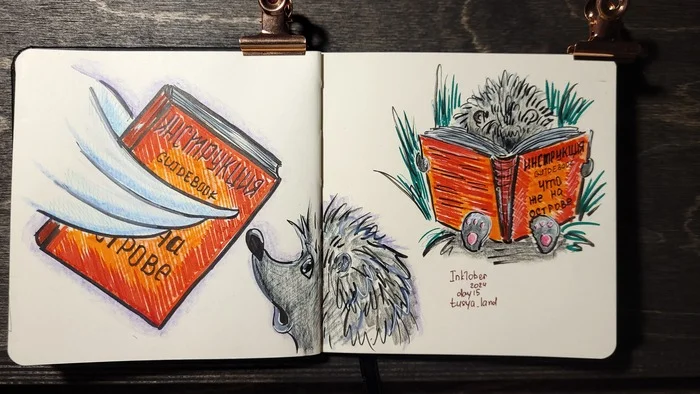 ИНСТРУКЦИЯ
GUIDEBOOK
на
ОСТРОВЕ
ИНСТРУКЦИЯ
GUIDEBOOK
ЧТО
ЖЕ НА
ОСТРОВЕ
Inktober
2024
day 15
tusya_land